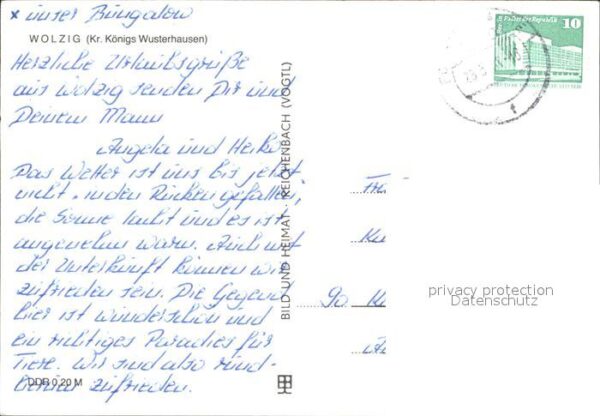 x unser Bungalow
WOLZIG (Kr. Königs Wusterhausen)
Herzliche Urlaubsgrüße
aus Wolzig senden Dir und
Deinem Mann
Angela und Heiko
Das Wetter ist uns bis jetzt
nicht in den Rücken gefallen,
die Sonne lacht und es ist
angenehm warm. Auch mit
der Unterkunft können wir
zufrieden sein. Die Gegend
hier ist wunderschön und
ein richtiges Paradies für
Tiere. Wir sind also rund-
herum zufrieden.
DDR 0,20 M
BILD UND HEIMAT · REICHENBACH (VOGTL)
Palast der Republik
10
90
privacy protection
Datenschutz